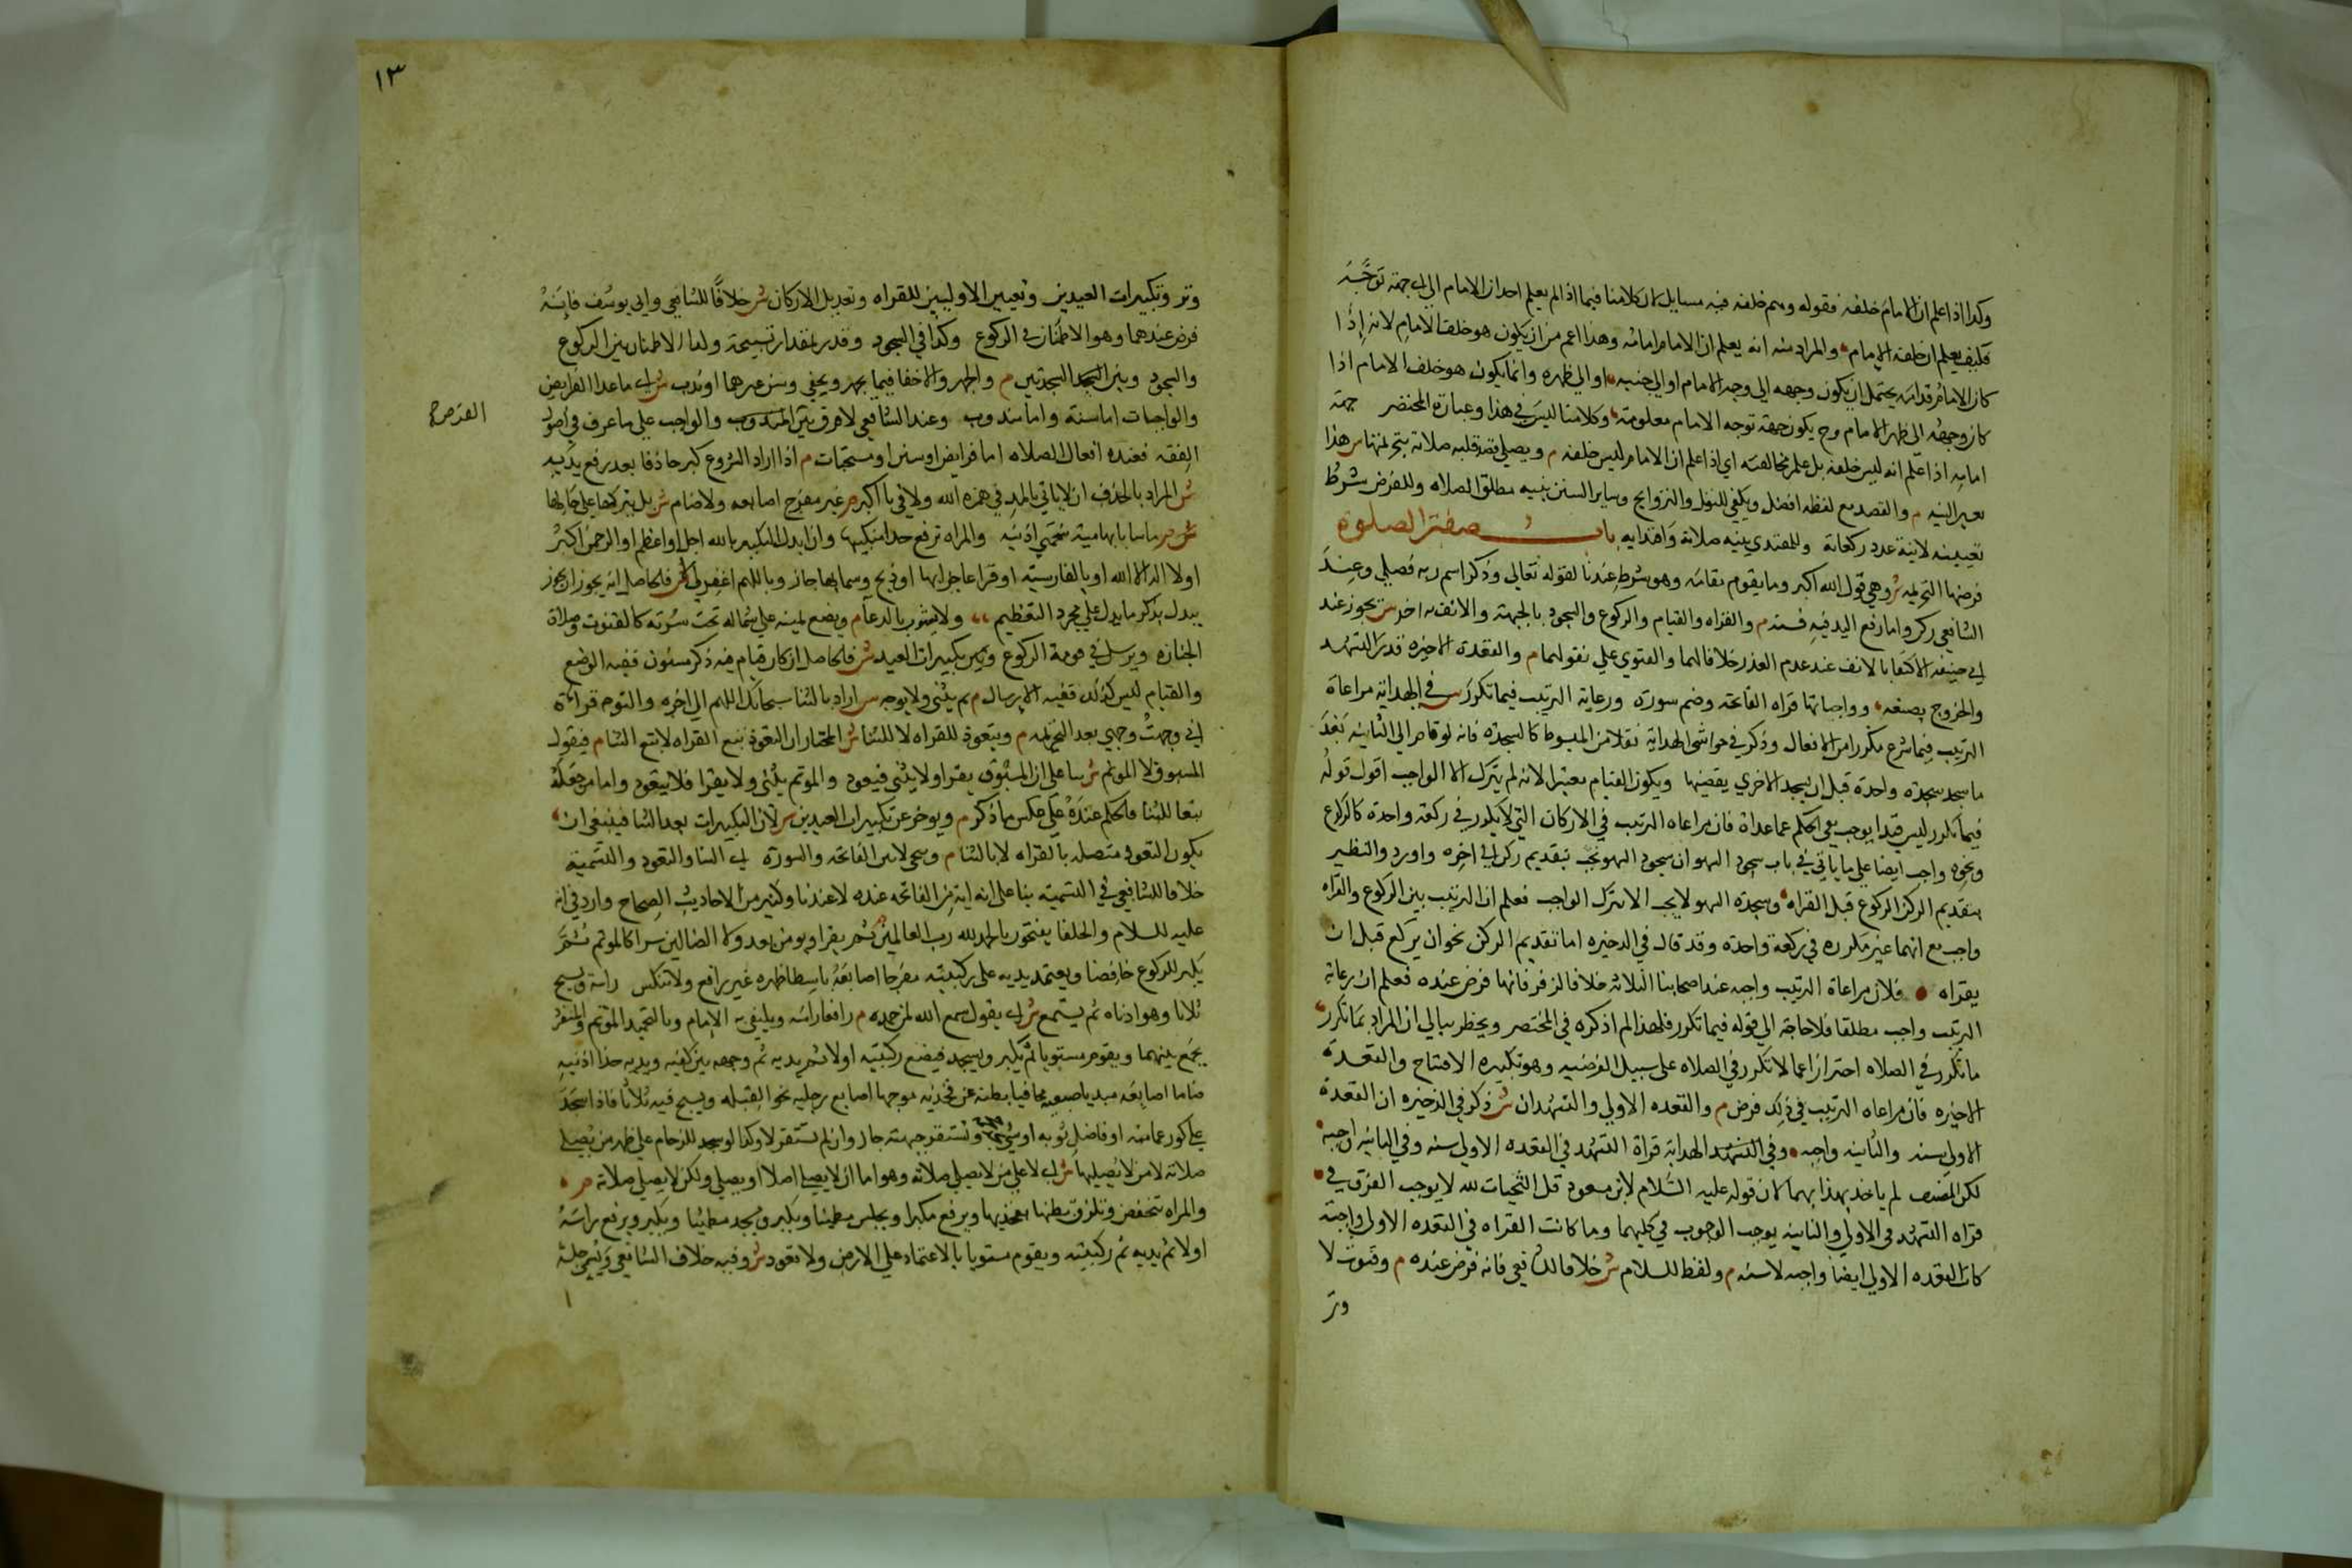 وكذا اذا علم ان الامام خلفه فقوله وهم خلفه فيه مسايل لان كلامنا فيما اذا لم يعلم احد ان الامام الى اي جهة توجه
فكيف يعلم ان خلفه الامام والمراد منه انه يعلم ان الامام امامه وهذا اعم من ان يكون هو خلف الامام لانه اذا
كان الامام قدامه يحتمل ان يكون وجهه الى وجه الامام او الى جنبه او الى ظهره وانما يكون هو خلف الامام اذا
كان وجهه الى ظهر الامام وح يكون جهة توجه الامام معلومة وكلامنا ليس في هذا وعبارة المختصر جهة
امامه اذا علم انه ليس خلفه بل علم مخالفته اي اذا علم ان الامام ليس خلفه م ويصلي قصد قلبه صلاته بتحريمتها س هذا
تعيير النيه م والقصد مع لفظه افضل ويكفي للنفل والتراويح وساير السنن بنيه مطلق الصلاه وللفرض شرط
تعيينه لا نية عدد ركعاته وللمقتدي بنيه صلاته واقتدايه باب صفة الصلوة
فرضها التحريمه ش وهي قول الله اكبر وما يقوم مقامه وهو شرط عندنا لقوله تعالى وذكر اسم ربه فصلى وعند
الشافعي ركن واما رفع اليد فيه فسنه م والقراه والقيام والركوع والسجود بالجبهة والانف به اخر ش يجوز عند
ابي حنيفه الاكتفا بالانف عند عدم العذر خلافا لهما والفتوي علي نقولهما م والقعدة الاخيره قدر التشهد
والخروج بصنعه وواجباتها قراه الفاتحه وضم سورة ورعاية الترتيب فيما تكرر س في الهداية مراعاة
الترتيب فيما شرع مكررا من الافعال وذكر في حواشى الهداية نقلا من المبسوط كالسجدة فانه لو قام الى الثانيه بعد
ما سجد سجدة واحدة قبل ان يسجد الاخري يقضيها ويكون القيام معتبرا لانه لم يترك الا الواجب اقول قوله
فيما تكرر ليس قيدا يوجب نفي الحكم عما عداه فان مراعاه الترتيب في الاركان التي لا تكرر في ركعة واحدة كالركوع
ونحوه واجب ايضا على ما ياتي في باب سجود السهو ان سجود السهو يجب بتقديم ركن الى اخره واورد والنظير
بتقديم الركن الركوع قبل القراه وسجدة السهو لا يجب الا بترك الواجب فعلم ان الترتيب بين الركوع والقراه
واجب مع انهما غير مكرره في ركعة واحدة وقد قال في الدخيره اما تقديم الركن نحو ان يركع قبل ان
يقراه فلان مراعاة الترتيب واجبه عند اصحابنا الثلاثه خلافا لزفر فانها فرض عنده فعلم ان رعاية
الترتيب واجب مطلقا فلا حاجة الى قوله فيما تكرر فلهذا لم اذكره في المختصر ويخطر ببالي ان المراد بما تكرر
ما تكرر في الصلاه احترازا عما لا تكرر في الصلاه على سبيل الفرضيه وهو تكبيره الافتتاح والقعدة
الاخيره فان مراعاه الترتيب في ذلك فرض م والقعده الاولى والتشهدان ش ذكر في الذخيره ان القعدة
الاولى سنه والثانيه واجبه وفي الهداية قراة التشهد في القعده الاولى سنه وفي الثانيه واجبه
لكن المصنف لم ياخذ بهذا بهما لان قوله عليه السلام لابن مسعود قل التحيات لله لا يوجب الفرق في
قراه التشهد في الاولى والثانيه يوجب الوجوب في كليهما وما كانت القراه في القعده الاولى واجبه
كان القعده الاولى ايضا واجبه لا سنه م ولفظ السلام ش خلافا للشافعي فانه فرض عنده م وقنوت لا
وتر
١٣
وتر وتكبيرات العيدين وتعيين الاوليين للقراه وتعديل الاركان ش خلافا للشافعي وابي يوسف فانه
فرض عندهما وهو الاطمنان في الركوع وكذا في السجود وقدر بمقدار تسبيحة وكذا الاطمنان بين الركوع
والسجود وبين السجدتين م والجهر والاخفا فيما يجهر ويخفي وسن غيرهما او ندب ش اي ما عدا الفرايض
والواجبات اما سنة واما مندوب وعند الشافعي لا فرق بين الفرض والواجب على ما عرف في اصول
الفرض
الفقه فعنده افعال الصلاه اما فرايض او سنن او مستحبات م اذا اراد الشروع كبر حاذفا بعد رفع يديه
ش المراد بالحذف ان لا ياتي بالمد في همزه الله ولا في با اكبر م غير مفرج اصابعه ولا ضام ش بل يتركها على حالها
ش م ماسا بابهاميه شحمتي اذنيه والمراه ترفع حذا منكبيها وان ابدل التكبير بالله اجل او اعظم او الرحمن اكبر
او لا اله الا الله او بالفارسية او قرا عاجزا بها او ذبح وسما بها جاز وباللهم اغفر لي لا ش فالحاصل انه يجوز ان يجوز
يبدل بذكر ما يدل على مجرد التعظيم ولا يشوب بالدعا م ويضع يمينه على شماله تحت سرته كالقنوت وصلاة
الجنازه ويرسل في قومة الركوع وبين تكبيرات العيد ش فالحاصل ان كل قيام فيه ذكر مسنون ففيه الوضع
والقيام ليس كذلك ففيه الارسال م ثم يثنى ولا يوجه س اراد بالثنا سبحانك اللهم الى اخره والتوجه قراءة
اني وجهت وجهي بعد التحريمه م ويتعوذ للقراه لا للثنا ش المختار ان التعوذ تبع القراه لا تبع الثنا م فيقوله
المسبوق لا الموتم ش بنا على ان المسبوق يقرا ولا يثنى فيعود والموتم يثنى ولا يقرا فلا يتعوذ واما من جعله
تبعا للثنا فالحكم عنده على عكس ما ذكر م ويوخر عن تكبيرات العيدين س لان التكبيرات بعد الثنا فينبغى ان
يكون التعوذ متصله بالقراه لا بالثنا م وسمى لا بين الفاتحه والسورة اي الثنا والتعوذ والتسمية
خلافا للشافعي في التسمية بنا على انه اية من الفاتحه عنده لا عندنا وكثير من الاحاديث الصحاح وارد في انه
عليه السلام والخلفا يفتتحون بالحمد لله رب العالمين ثم يقرا ويومن بعد ولا الضالين سرا كالموتم ثم
يكبر للركوع خافضا ويعتمد بيديه على ركبتيه مفرجا اصابعه باسطا ظهره غير رافع ولا منكس راسه ويسبح
ثلاثا وهو ادناه ثم يسمع ش اي يقول سمع الله لمن حمده م رافعا راسه ويكتفي به الامام وبالتحميد الموتم والمنفرد
يجمع بينهما ويقوم مستويا ثم يكبر ويسجد فيضع ركبتيه اولا ثم يديه ثم وجهه بين كفيه ويديه حذا اذنيه
ضاما اصابعه مبديا ضبعيه مجافيا بطنه عن فخذيه موجها اصابع رجليه نحو القبله ويسبح فيه ثلاثا فاذا سجد
على كور عمامته او فاضل ثوبه او شي يجد حجمه وتستقر جبهته جاز وان لم تستقر لا وكذا لو سجد للزحام على ظهر من يصلى
صلاته لا من لا يصليها ش اي لا على من لا يصلي صلاته وهو اما ان لا يصلى اصلا او يصلى ولكن لا يصلي صلاته م
والمراه تنخفض وتلزق بطنها بفخذيها ويرفع مكبرا ويجلس مطمئنا ويكبر ويسجد مطمئنا ويكبر ويرفع راسه
اولا ثم يديه ثم ركبتيه ويقوم مستويا بالاعتماد على الارض ولا قعود ش وفيه خلاف الشافعي ويسمى جلسة
ا